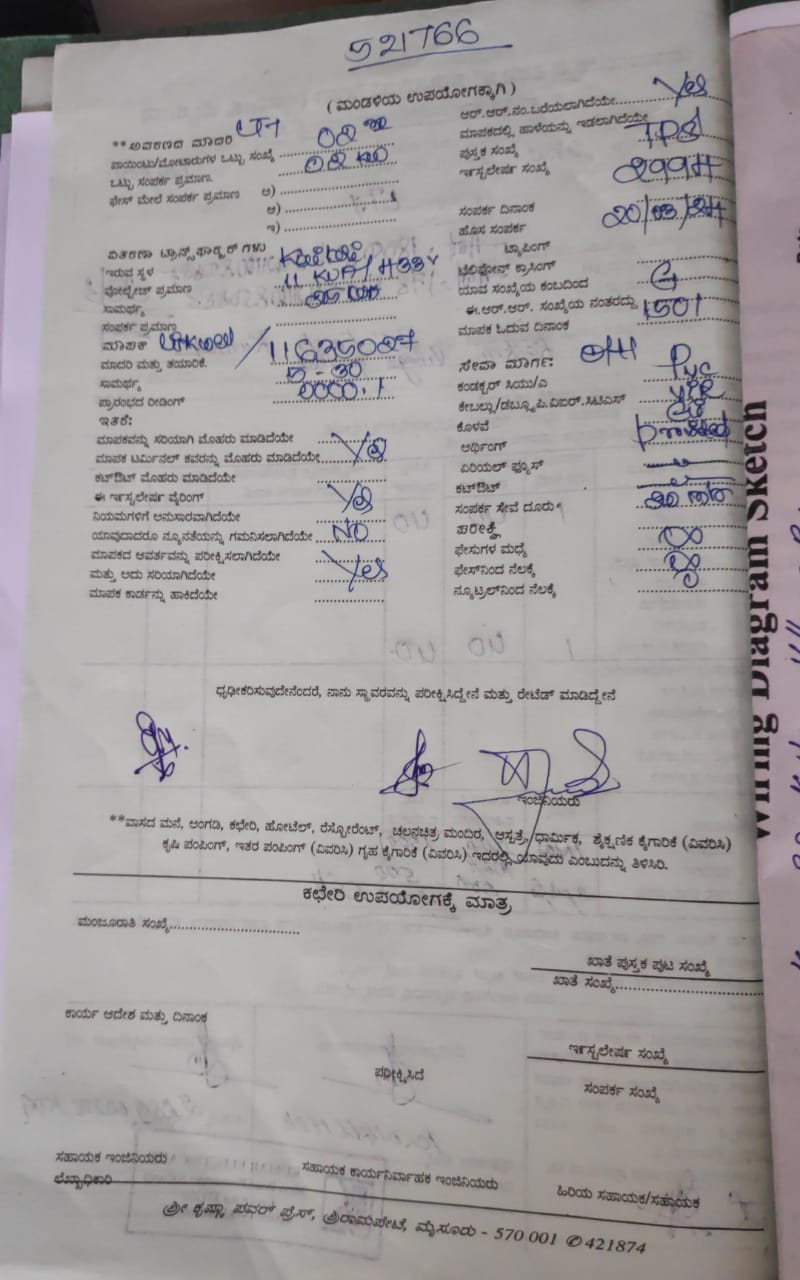 521766
( ಮಂಡಳಿಯ ಉಪಯೋಗಕ್ಕಾಗಿ )
**ಆವರಣದ ಮಾದರಿ
ಪಾಯಿಂಟು/ಮೋಟಾರುಗಳ ಒಟ್ಟು ಸಂಖ್ಯೆ
ಒಟ್ಟು ಸಂಪರ್ಕ ಪ್ರಮಾಣ.
ಫೇಸ್ ಮೇಲೆ ಸಂಪರ್ಕ ಪ್ರಮಾಣ ಅ)
ಆ)
ಇ)
ವಿತರಣಾ ಟ್ರಾನ್ಸ್‌ಫಾರ್ಮರ್ ಗಳು
ಇರುವ ಸ್ಥಳ
ವೋಲ್ಟೇಜ್ ಪ್ರಮಾಣ 11 KVA/433V
ಸಾಮರ್ಥ್ಯ
ಸಂಪರ್ಕ ಪ್ರಮಾಣ
ಮಾಪಕ
ಮಾದರಿ ಮತ್ತು ತಯಾರಿಕೆ. 11635027
ಸಾಮರ್ಥ್ಯ 5-30
ಪ್ರಾರಂಭದ ರೀಡಿಂಗ್
ಇತರೆ:
ಮಾಪಕವನ್ನು ಸರಿಯಾಗಿ ಮೊಹರು ಮಾಡಿದೆಯೇ
ಮಾಪಕ ಟರ್ಮಿನಲ್ ಕವರನ್ನು ಮೊಹರು ಮಾಡಿದೆಯೇ Yes
ಕಟ್‌ಔಟ್ ಮೊಹರು ಮಾಡಿದೆಯೇ
ಈ ಇನ್ಸ್ಟಲೇಷನ್ ವೈರಿಂಗ್
ನಿಯಮಗಳಿಗೆ ಅನುಸಾರವಾಗಿದೆಯೇ Yes
ಯಾವುದಾದರೂ ನ್ಯೂನತೆಯನ್ನು ಗಮನಿಸಲಾಗಿದೆಯೇ NO
ಮಾಪಕದ ಆವರ್ತವನ್ನು ಪರೀಕ್ಷಿಸಲಾಗಿದೆಯೇ
ಮತ್ತು ಅದು ಸರಿಯಾಗಿದೆಯೇ Yes
ಮಾಪಕ ಕಾರ್ಡನ್ನು ಹಾಕಿದೆಯೇ
ಆರ್.ಆರ್.ನಂ.ಬರೆಯಲಾಗಿದೆಯೇ Yes
ಮಾಪಕದಲ್ಲಿ ಹಾಳೆಯನ್ನು ಇಡಲಾಗಿದೆಯೇ
ಪುಸ್ತಕ ಸಂಖ್ಯೆ
ಇನ್ಸ್ಟಲೇಷನ್ ಸಂಖ್ಯೆ
ಸಂಪರ್ಕ ದಿನಾಂಕ
ಹೊಸ ಸಂಪರ್ಕ
ಟ್ಯಾಪಿಂಗ್
ಟೆಲಿಫೋನ್ ಕ್ರಾಸಿಂಗ್
ಯಾವ ಸಂಖ್ಯೆಯ ಕಂಬದಿಂದ
ಈ.ಆರ್.ಆರ್. ಸಂಖ್ಯೆಯ ನಂತರದ್ದು 1501
ಮಾಪಕ ಓದುವ ದಿನಾಂಕ
ಸೇವಾ ಮಾರ್ಗ: OH
ಕಂಡಕ್ಟರ್ ಸಿಯು/ಎ
ಕೇಬಲ್ಲು/ಡಬ್ಲ್ಯೂಪಿ.ವಿಐಆರ್.ಸಿಟಿಎಸ್
ಕೊಳವೆ
ಅರ್ಥಿಂಗ್
ಏರಿಯಲ್ ಫ್ಯೂಸ್
ಕಟ್‌ಔಟ್
ಸಂಪರ್ಕ ಸೇವೆ ದೂರ
ಪರೀಕ್ಷೆ
ಫೇಸುಗಳ ಮಧ್ಯೆ
ಫೇಸ್‌ನಿಂದ ನೆಲಕ್ಕೆ
ನ್ಯೂಟ್ರಲ್‌ನಿಂದ ನೆಲಕ್ಕೆ
ಧೃಢೀಕರಿಸುವುದೇನೆಂದರೆ, ನಾನು ಸ್ಥಾವರವನ್ನು ಪರೀಕ್ಷಿಸಿದ್ದೇನೆ ಮತ್ತು ರೇಟೆಡ್ ಮಾಡಿದ್ದೇನೆ
ಇಂಜಿನಿಯರು
**ವಾಸದ ಮನೆ, ಅಂಗಡಿ, ಕಛೇರಿ, ಹೋಟೆಲ್, ರೆಸ್ಟೋರೆಂಟ್, ಚಲನಚಿತ್ರ ಮಂದಿರ, ಆಸ್ಪತ್ರೆ, ಧಾರ್ಮಿಕ, ಶೈಕ್ಷಣಿಕ ಕೈಗಾರಿಕೆ (ವಿವರಿಸಿ)
ಕೃಷಿ ಪಂಪಿಂಗ್, ಇತರ ಪಂಪಿಂಗ್ (ವಿವರಿಸಿ) ಗೃಹ ಕೈಗಾರಿಕೆ (ವಿವರಿಸಿ) ಇದರಲ್ಲಿ ಯಾವುದು ಎಂಬುದನ್ನು ತಿಳಿಸಿರಿ.
ಕಛೇರಿ ಉಪಯೋಗಕ್ಕೆ ಮಾತ್ರ
ಮಂಜೂರಾತಿ ಸಂಖ್ಯೆ
ಖಾತೆ ಪುಸ್ತಕ ಪುಟ ಸಂಖ್ಯೆ
ಖಾತೆ ಸಂಖ್ಯೆ
ಕಾರ್ಯ ಆದೇಶ ಮತ್ತು ದಿನಾಂಕ
ಇನ್ಸ್ಟಲೇಷನ್ ಸಂಖ್ಯೆ
ಪರೀಕ್ಷಿಸಿದೆ
ಸಂಪರ್ಕ ಸಂಖ್ಯೆ
ಸಹಾಯಕ ಇಂಜಿನಿಯರು
ಲೆಖ್ಖಾಧಿಕಾರಿ
ಸಹಾಯಕ ಕಾರ್ಯನಿರ್ವಾಹಕ ಇಂಜಿನಿಯರು
ಹಿರಿಯ ಸಹಾಯಕ/ಸಹಾಯಕ
ಶ್ರೀ ಕೃಷ್ಣಾ ಪವರ್ ಪ್ರೆಸ್, ಶ್ರೀರಾಮಪೇಟೆ, ಮೈಸೂರು - 570 001 ✆ 421874
Wiring Diagram Sketch